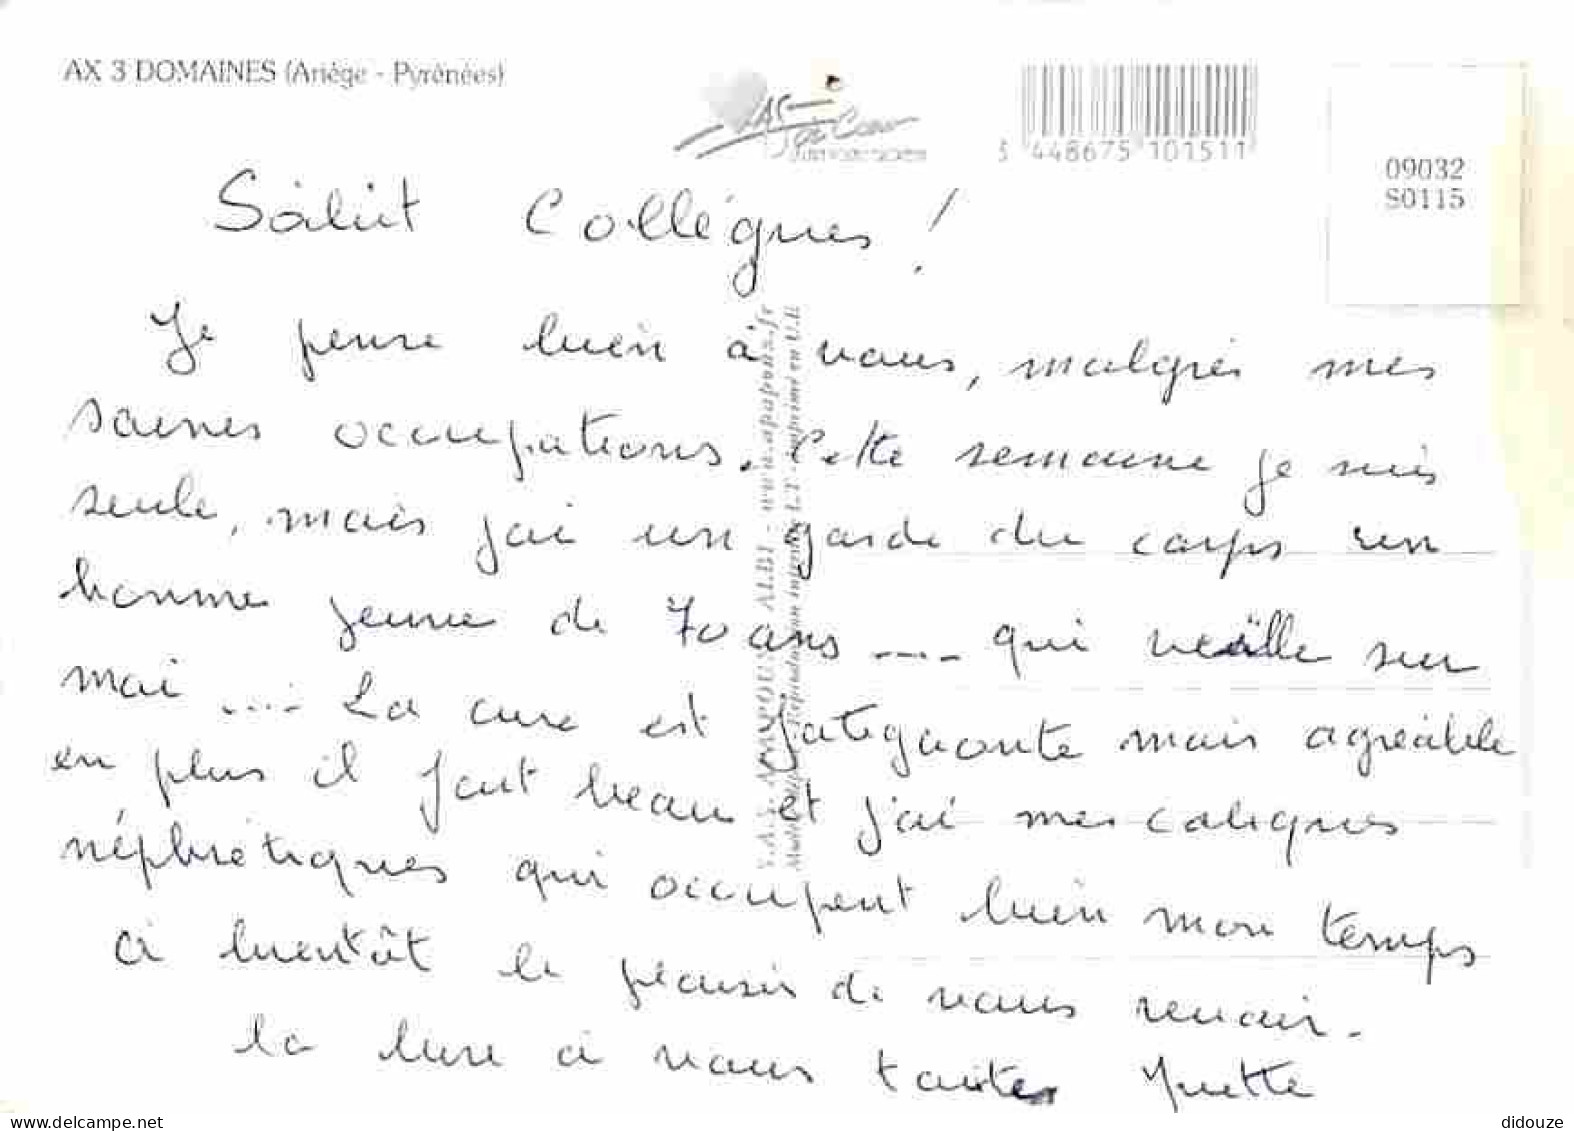 AX 3 DOMAINES (Ariège - Pyrénées)
3 448675 101511
09032
S0115
Salut Collègues !
Je pense bien à vous, malgrés mes
saines occupations. Cette semaine je suis
seule, mais j'ai un garde du corps un
homme jeune de 70 ans .... qui veille sur
moi .... La cure est fatigante mais agréable
en plus il fait beau et j'ai mes coliques
néphrétiques qui occupent bien mon temps
à bientôt le plaisir de vous revoir.
la bise à vous toutes Yvette
S.A.S. APAPOUX ALBI - www.apapoux.fr
Reproduction interdite - Imprimé en U.E.
didouze